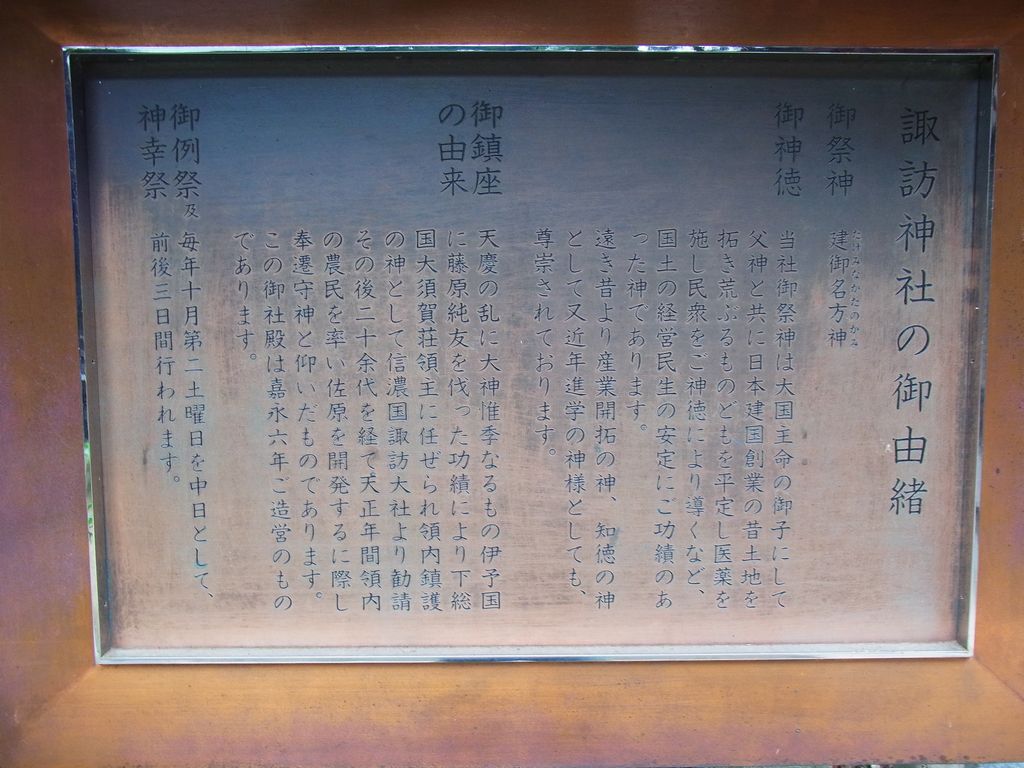 諏訪神社の御由緒
御祭神
建御名方神
たけみなかたのかみ
御神徳
当社御祭神は大国主命の御子にして
父神と共に日本建国創業の昔土地を
拓き荒ぶるものどもを平定し医薬を
施し民衆をご神徳により導くなど、
国土の経営民生の安定にご功績のあ
った神であります。
遠き昔より産業開拓の神、知徳の神
として又近年進学の神様としても、
尊崇されております。
御鎮座
の由来
天慶の乱に大神惟季なるもの伊予国
に藤原純友を伐った功績により下総
国大須賀荘領主に任ぜられ領内鎮護
の神として信濃国諏訪大社より勧請
その後二十余代を経て天正年間領内
の農民を率い佐原を開発するに際し
奉遷守神と仰いだものであります。
この御社殿は嘉永六年ご造営のもの
であります。
御例祭及
神幸祭
毎年十月第二土曜日を中日として、
前後三日間行われます。